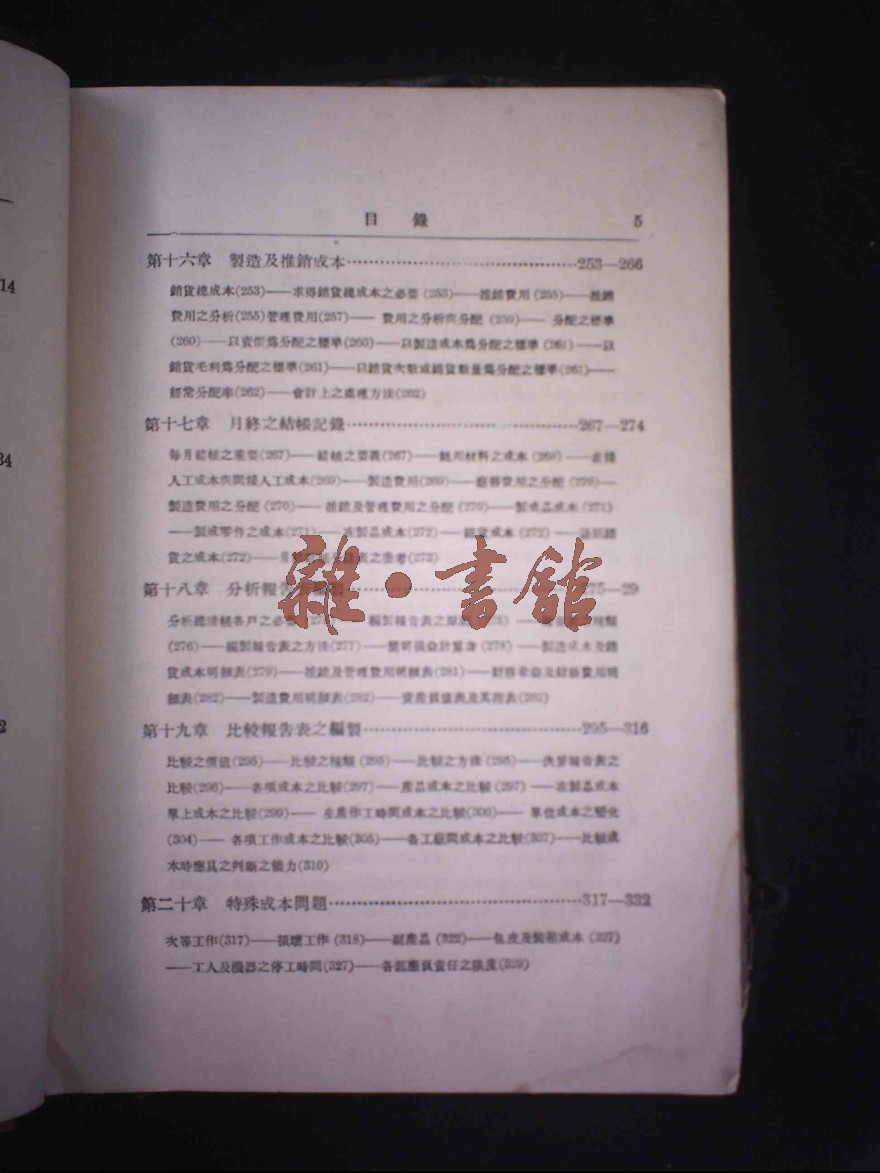 目錄 5
第十六章 製造及推銷成本……253—266
銷貨總成本(253)——求得銷貨總成本之必要(253)——推銷費用(255)——推銷
費用之分析(255)管理費用(257)——費用之分析與分配(259)——分配之標準
(260)——以賣價爲分配之標準(260)——以製造成本爲分配之標準(261)——以
銷貨毛利爲分配之標準(261)——以銷貨次數或銷貨數量爲分配之標準(261)——
經常分配率(262)——會計上之處理方法(262)
第十七章 月終之結帳記錄……267—274
每月結帳之重要(267)——結帳之要義(267)——耗用材料之成本(268)——直接
人工成本與間接人工成本(269)——製造費用(269)——廠務費用之分配(270)—
製造費用之分配(270)——推銷及管理費用之分配(270)——製成品成本(271)
——製成零件之成本(271)——在製品成本(272)——銷貨成本(272)——
貨之成本(272)——月 表之參考(273)
第十八章 分析報告 75—29
分析總清帳各戶之必 編製報告表之原 種類
(276)——編製報告表之方法(277)——簡明損益計算書(278)——製造成本及銷
貨成本明細表(279)——推銷及管理費用明細表(281)——財務收益及財務費用明
細表(282)——製造費用明細表(282)——資產負債表及其附表(282)
第十九章 比較報告表之編製……295—316
比較之價值(295)——比較之種類(295)——比較之方法(295)——決算報告表之
比較(296)——各項成本之比較(297)——產品成本之比較(297)——在製品成本
單上成本之比較(299)——生產作工時間成本之比較(300)——單位成本之變化
(304)——各項工作成本之比較(305)——各工廠間成本之比較(307)——比較成
本時應具之判斷之能力(310)
第二十章 特殊成本問題……317—332
次等工作(317)——損壞工作(318)——副產品(322)——包皮及裝箱成本(327)
——工人及機器之停工時間(327)——各部應負責任之限度(329)
14
34
2
雜·書館